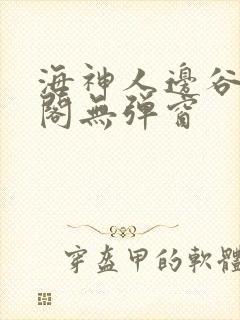 海神人邊谷
閣無彈窗
穿盔甲的軟體